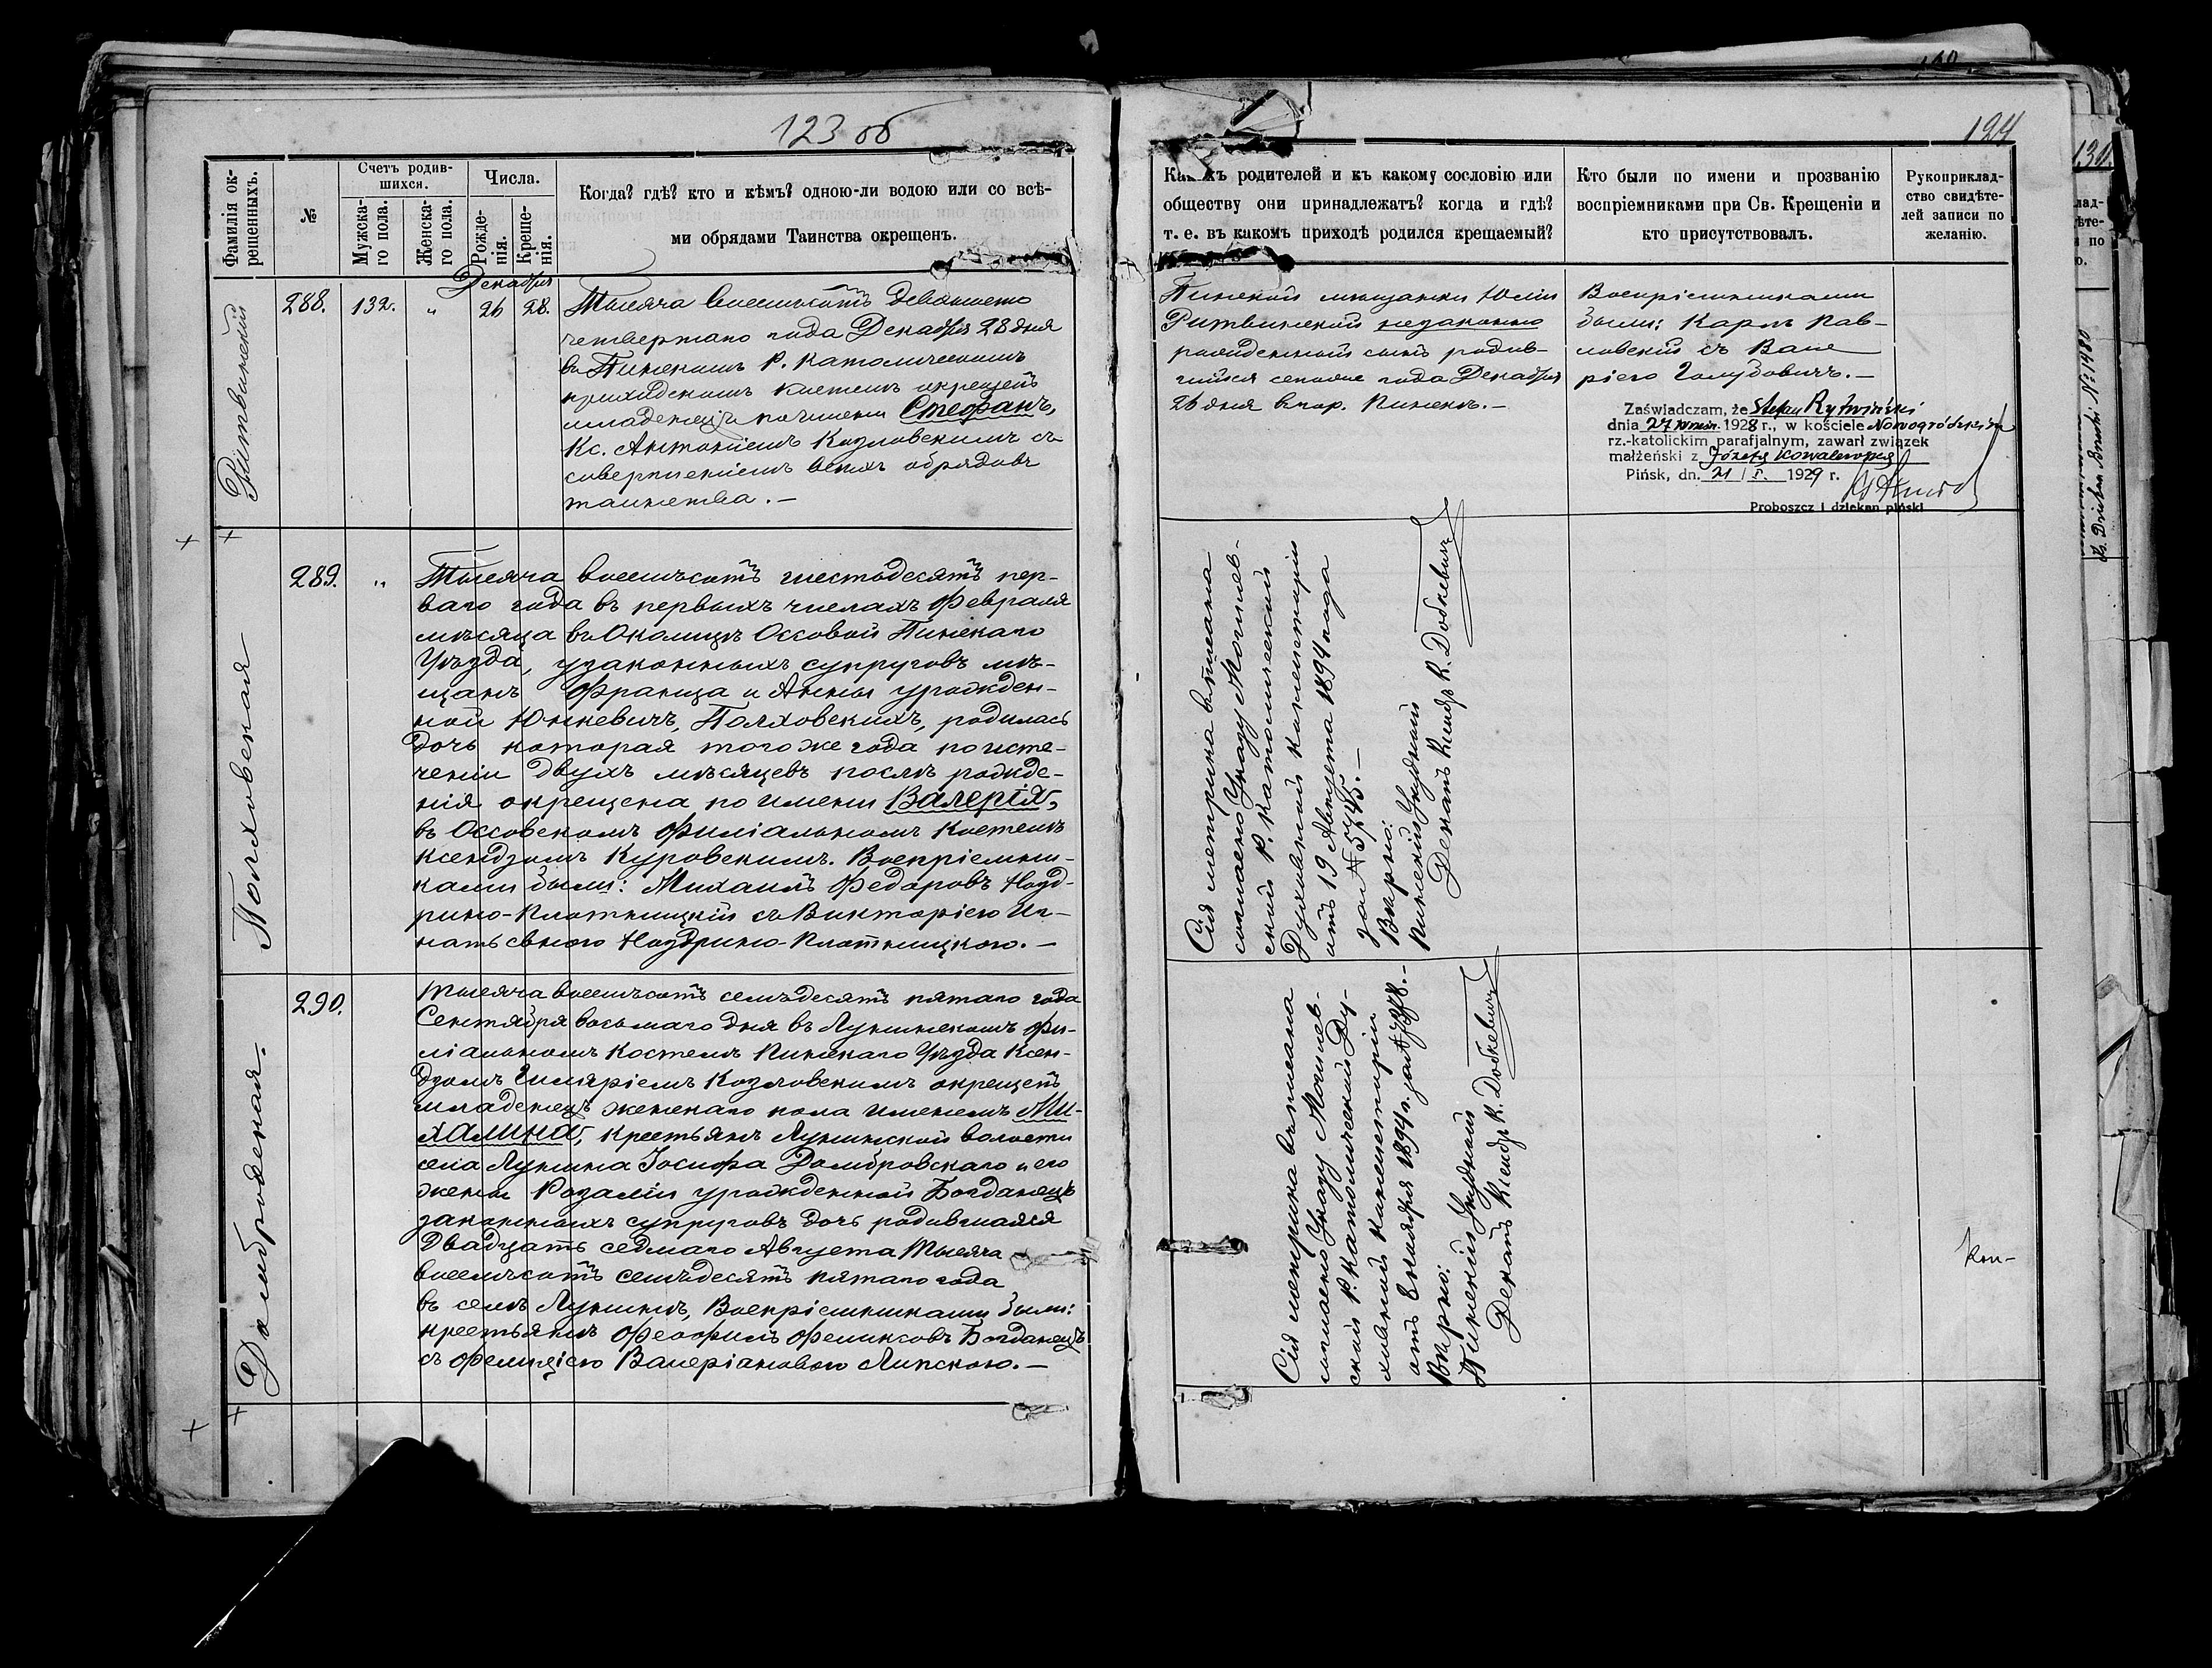 123 об
Фамилія ок-
рещенныхъ.
№
Счетъ родив-
шихся.
Мужска-
го пола.
Женска-
го пола.
Числа.
Рожде-
нія.
Креще-
нія.
Когда? гдѣ? кто и кѣмъ? одною-ли водою или со всѣ-
ми обрядами Таинства окрещенъ.
Ритвинскій
288.
132.
„
Декабря
26
28.
Тысяча восемьсотъ девяносто
четвертаго года Декабря 28 дня
въ Пинскомъ Р. Католическомъ
приходскомъ костелѣ окрещенъ
младенецъ по имени Стефанъ,
Кс. Антоніемъ Козловскимъ съ
совершеніемъ всѣхъ обрядовъ
таинства. —
Полховская
289.
„
Тысяча восемьсотъ шестьдесятъ пер-
ваго года въ первыхъ числахъ Февраля
мѣсяца въ Околицѣ Оссовой Пинскаго
Уѣзда, у законныхъ супруговъ мѣ-
щанъ Франца и Анны урожден-
ной Юнкевичъ, Полховскихъ, родилась
дочь которая того же года по исте-
ченіи двухъ мѣсяцевъ послѣ рожде-
нія окрещена по имени Валерія,
въ Оссовскомъ Филіальномъ Костелѣ
Ксендзомъ Куровскимъ. Воспріемни-
ками были: Михаилъ Федоровъ
рино-Плотницкій съ Викторіею Иг-
натьевною -Плотницкою. —
Домбровская
290.
Тысяча восемьсотъ семьдесятъ пятаго года
Сентября восьмаго дня въ Лунинскомъ Фи-
ліальномъ Костелѣ Пинскаго Уѣзда Ксен-
дзомъ Гиляріемъ Козловскимъ окрещенъ
младенецъ женскаго пола именемъ Ми-
халина, крестьянъ Лунинской волости
села Лунина Іосифа Домбровскаго и его
жены Розаліи урожденной Богданецъ
законныхъ супруговъ дочь родившаяся
Двадцать седьмаго Августа Тысяча
восемьсотъ семьдесятъ пятаго года
въ селѣ Лунинѣ, Воспріемниками были:
крестьянинъ Феофилъ Феликсовъ Богданецъ
съ Фелиціею Валеріановою Липскою. —
124
Какихъ родителей и къ какому сословію или
обществу они принадлежатъ? когда и гдѣ?
т. е. въ какомъ приходѣ родился крещаемый?
Кто были по имени и прозванію
воспріемниками при Св. Крещеніи и
кто присутствовалъ.
Рукоприклад-
ство свидѣте-
лей записи по
желанію.
Пинской мѣщанки Юліи
Ритвинской незаконно
рожденный сынъ родив-
шійся сегоже года Декабря
26 дня въ гор. Пинскѣ. —
Воспріемниками
были: Карлъ Пав-
ловскій съ Вале
ріею Голубовичъ. —
Zaświadczam, że Stefan Rytwiński
dnia 27 1928 r., w kościele Nowogródzkim
rz.-katolickim parafjalnym, zawarł związek
małżeński z Józefą Kowalewską
Pińsk, dn. 21 / I. 1929 r.
Proboszcz i dziekan piński
Сія метрика вписана
согласно Указу Могилев-
ской Р. Католической
Духовной Консисторіи
отъ 19 Августа 1894 года
за № 5745. —
Вѣрно:
Пинскій Уѣздный
Деканъ Ксендзъ К. Добкевичъ
Сія метрика вписана
согласно Указу Могилев-
ской Р. Католической Ду-
ховной Консисторіи
отъ Сентября 1894 г. за №
Вѣрно:
Пинскій Уѣздный
Деканъ Ксендзъ К. Добкевичъ